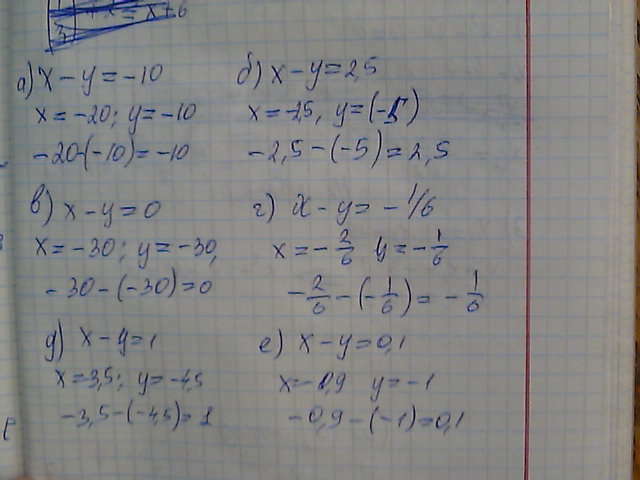 = x + 6
а) x - y = -10
x = -20; y = -10
-20-(-10) = -10
б) x - y = 2,5
x = -2,5, y = (-5)
-2,5 - (-5) = 2,5
в) x - y = 0
x = -30; y = -30,
-30 - (-30) = 0
г) x - y = -1/6
x = -2/6 y = -1/6
-2/6 - (-1/6) = -1/6
д) x - y = 1
x = 3,5; y = -4,5
-3,5 - (-4,5) = 1
е) x - y = 0,1
x = -0,9 y = -1
-0,9 - (-1) = 0,1